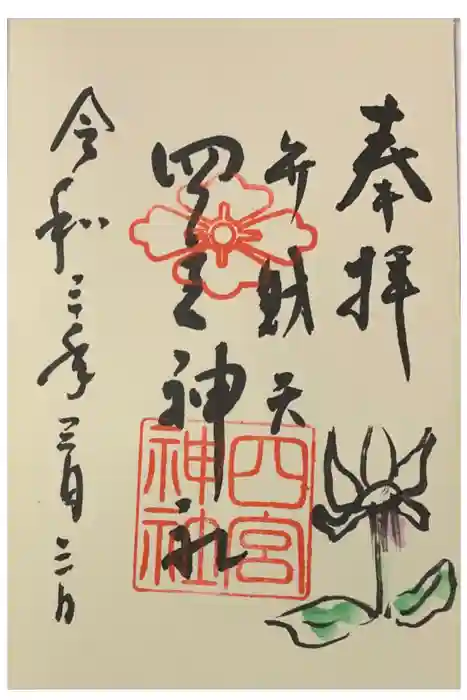 奉拝
弁財天
四宮神社
四宮
神社
令和三年三月二日